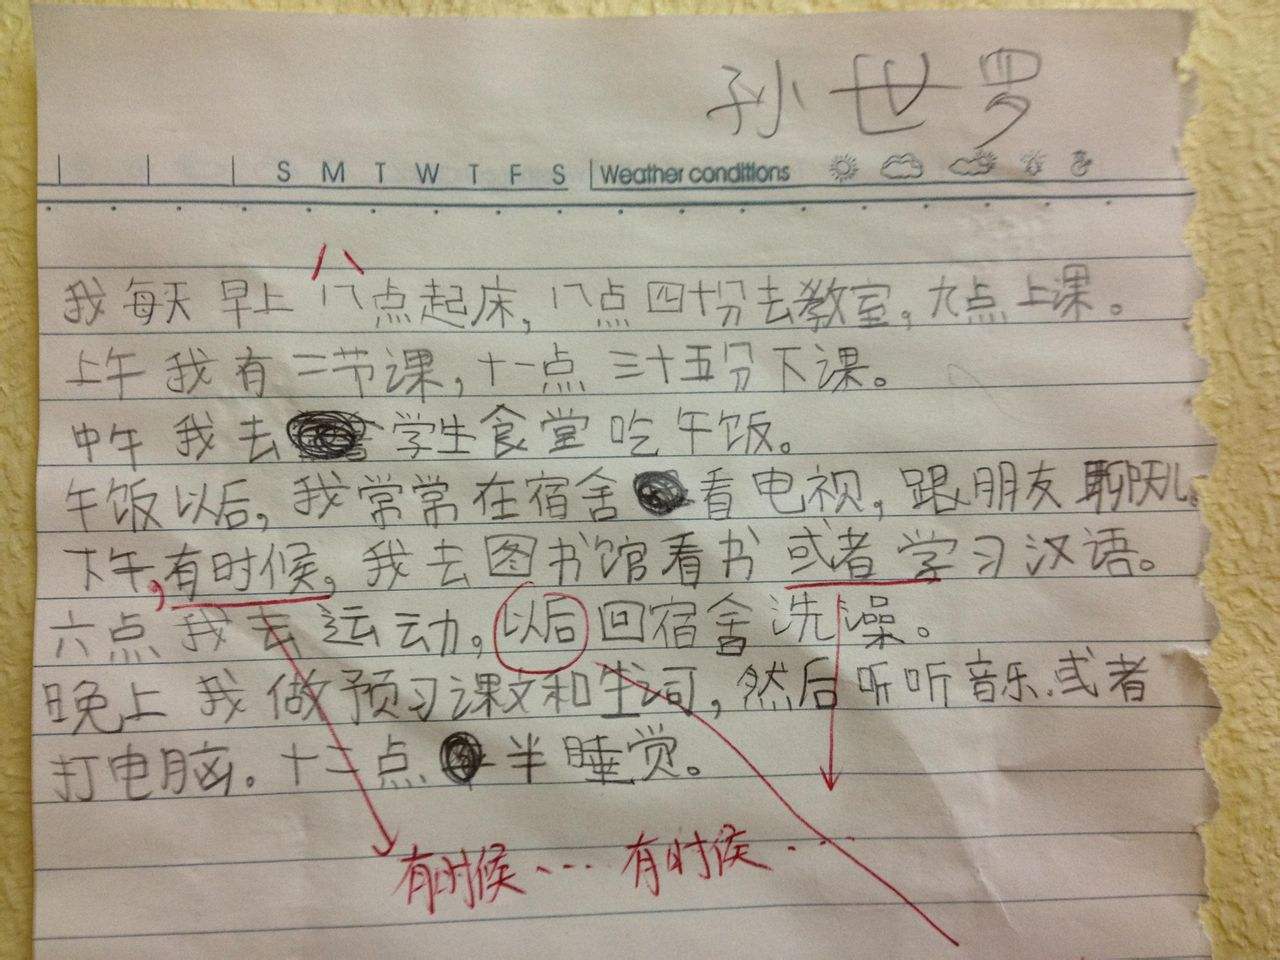 孙世罗
S M T W T F S Weather conditions
八
我每天早上八点起床,八点四十分去教室,九点上课。
上午我有二节课,十一点三十五分下课。
中午我去学生食堂吃午饭。
午饭以后,我常常在宿舍看电视,跟朋友聊天儿。
下午,有时候,我去图书馆看书或者学习汉语。
六点我去运动,以后回宿舍洗澡。
晚上我做预习课文和生词,然后听听音乐.或者
打电脑。十二点半睡觉。
有时候····有时候···